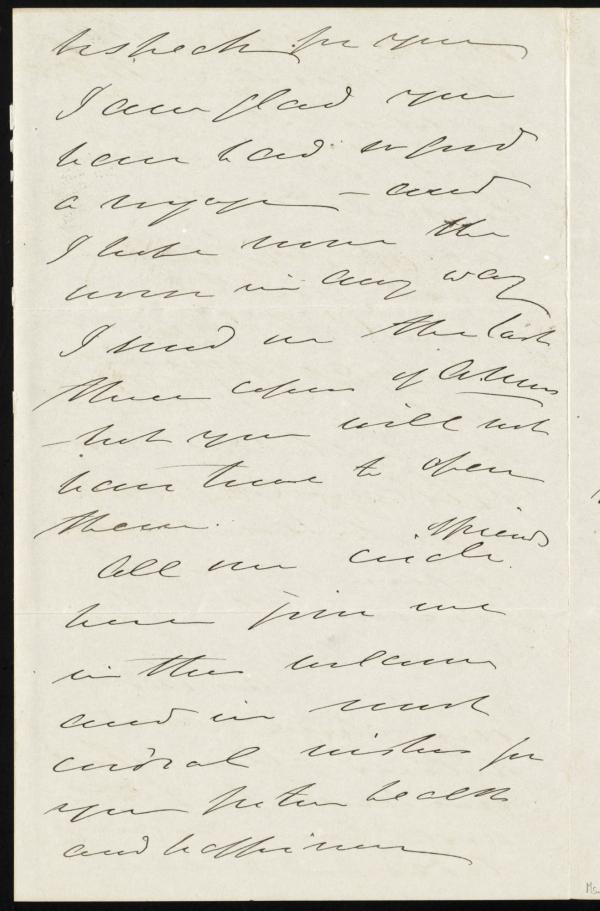 respect for you
I am glad you
have had so good
a voyage — and
I hope none the
worse in any way
I send you the last
three copies of
— but you will not
have time to open
them.
All our circle of friends
here join me
in this welcome
and in most
cordial wishes for
your future health
and happiness